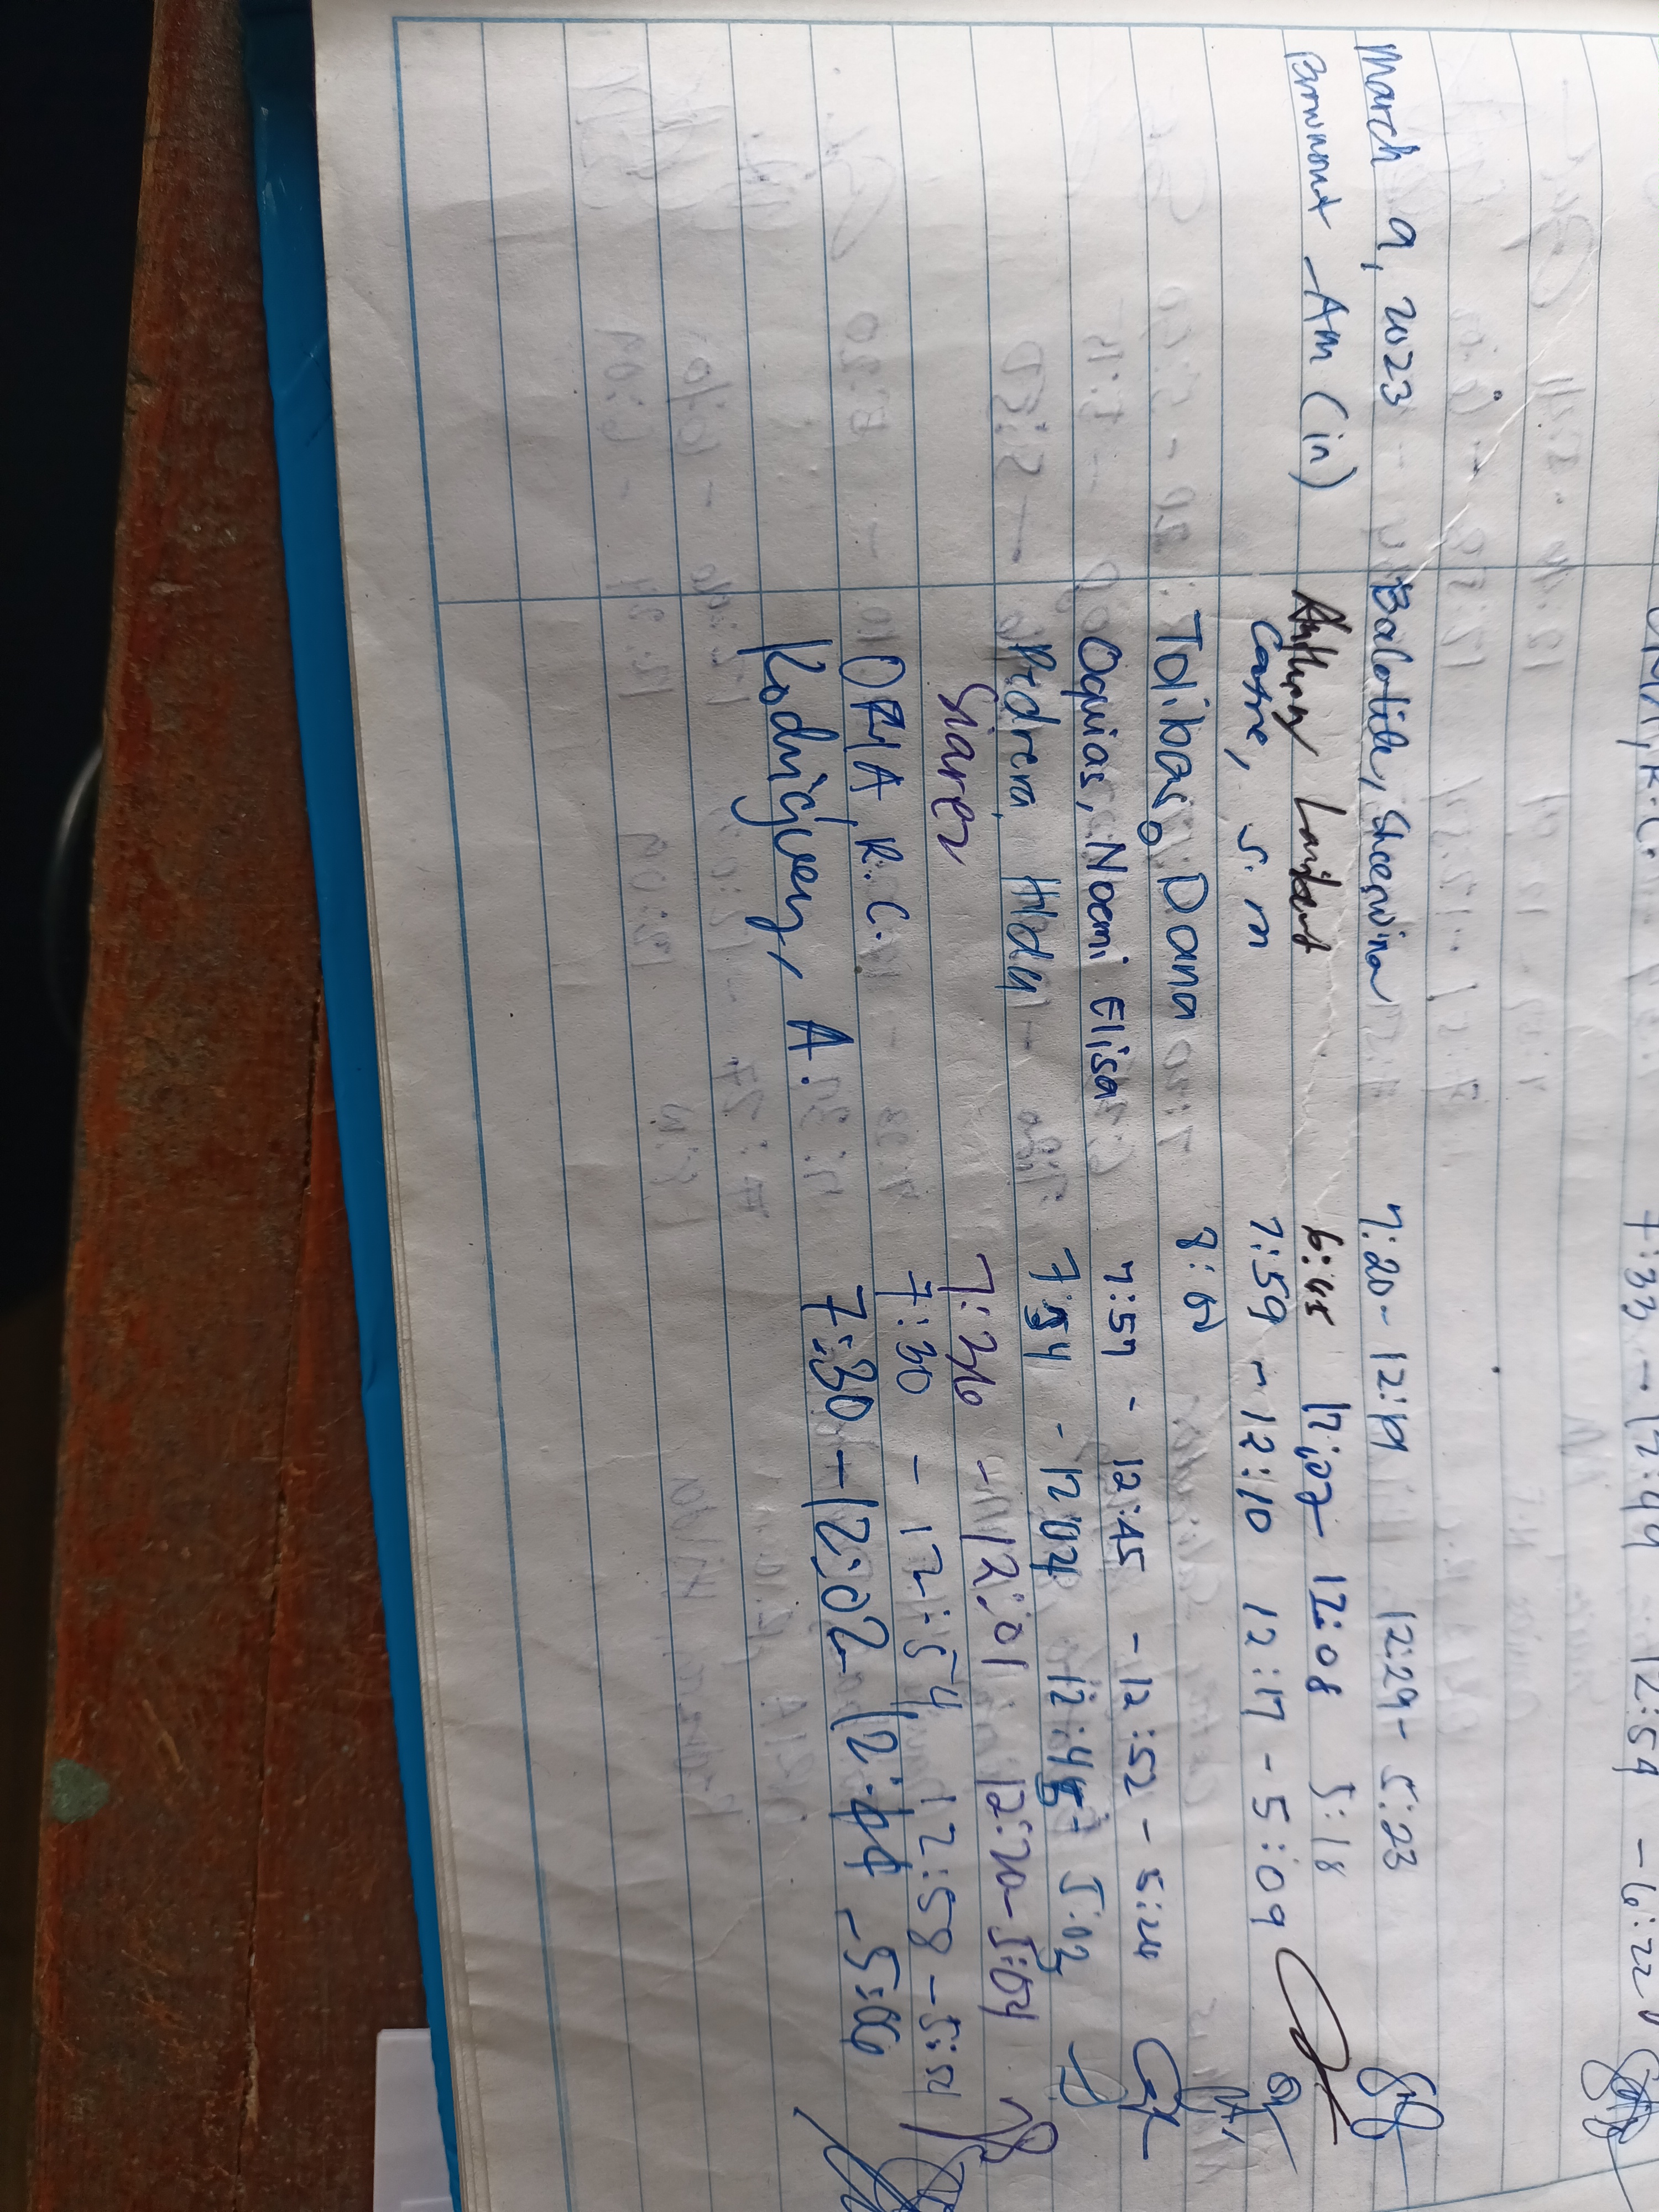 7:33 - 12:49 12:54 - 6:22
March 9, 2023 Balatite, Sheerwina 7:20 - 12:19 12:29 - 5:23
Brownout - Am (in) Anthony Lambert 6:45 12:07 12:08 5:18
Castre, S. M 7:59 - 12:10 12:17 - 5:09
Tolibas, Dana
Oquias, Noemi Elisa 7:57 - 12:45 - 12:52 - 5:24
Pedrera, Hildy 7:54 - 12:04 5:03
Siarez 7:36 - 12:01 12:20 - 5:04
OPIA, R.C. 7:30 - 12:54 12:58 - 5:54
Rodriguez, A. 7:30 - 12:02 - 5:06